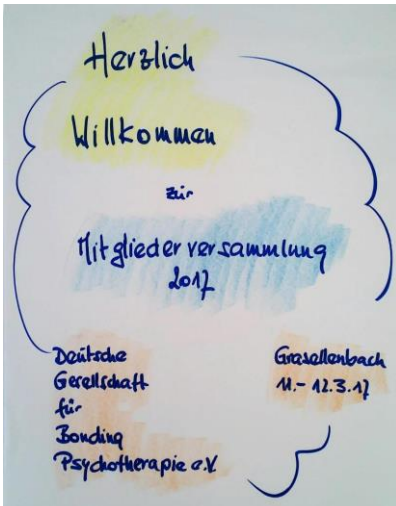 Herzlich
Willkommen
zur
Mitgliederversammlung
2017
Deutsche
Gesellschaft
für
Bonding
Psychotherapie e.V.
Grasellenbach
11.- 12.3.17